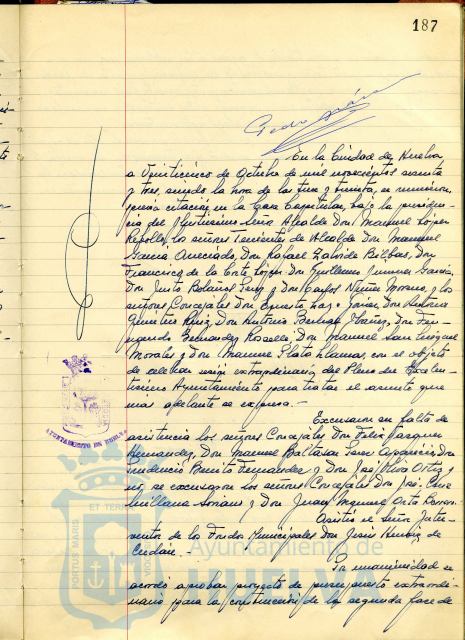 187
Pedro
En la Ciudad de Huelva
a Veinticinco de Octubre de mil novecientos sesenta
y tres, siendo la hora de las trece y treinta, se reunieron,
previa citación en la Casa Capitular, bajo la presiden-
cia del Ilustrísimo Señor Alcalde Don Manuel López
Rebollo, los señores Tenientes de Alcalde Don Manuel
García Don Rafael Bilbao, Don
Francisco de la Corte López, Don Guillermo Jimenez García,
Don Justo Bolaños Don Carlos Núñez Moreno, y los
señores Concejales Don Ernesto Don Antonio
Quintero Ruiz, Don Antonio Ibáñez, Don Fer-
nando Fernandez Don Manuel San
Morales y Don Manuel Plata Llamas, con el objeto
de celebrar sesión extraordinaria del Pleno del Excelen-
tísimo Ayuntamiento para tratar el asunto que
más adelante se expresa.-
Excusaron su falta de
asistencia los señores Concejales Don Felix Vazquez
Hernandez, Don Manuel Baltasar Don
Prudencio Benito Fernandez y Don José Ortiz y
no se excusaron los señores Concejales Don José
Soriano y Don Juan Orta
Asistió el Señor Inter-
ventor de los Fondos Municipales Don Jesús de
Por unanimidad se
acordó aprobar proyecto de presupuesto extraordi-
nario para la construcción de la segunda fase de
AYUNTAMIENTO DE HUELVA
PORTUS MARIS ET TERRAE
Ayuntamiento de
HUELVA